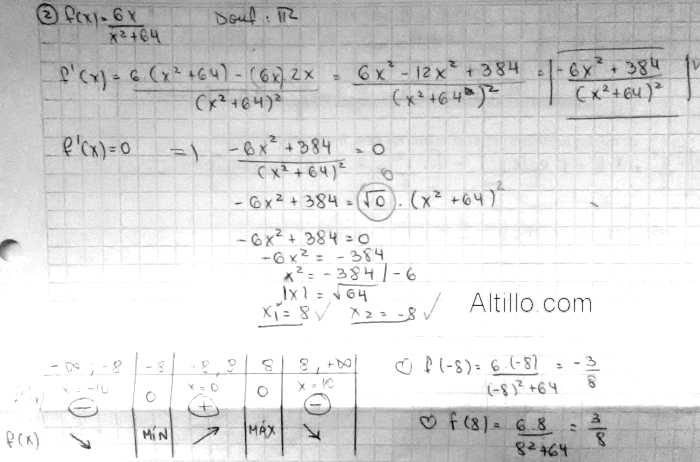 ② f(x) = 6x / x²+64   Domf: ℝ
f'(x) = 6.(x²+64) - (6x).2x / (x²+64)² = 6x² - 12x² + 384 / (x²+64)² = -6x² + 384 / (x²+64)²
f'(x)=0 => -6x² + 384 / (x²+64)² = 0
-6x² + 384 = √0 . (x²+64)²
0
-6x² + 384 = 0
-6x² = -384
x² = -384 / -6
|x| = √64
x₁ = 8 ✓   x₂ = -8 ✓
Altillo.com
-∞, -8 | -8 | -8, 8 | 8 | 8, +∞
x = -10 | 0 | x = 0 | 0 | x = 10
- | + | -
f(x) ↘ | MÍN | ↗ | MÁX | ↘
f(-8) = 6.(-8) / (-8)²+64 = -3/8
f(8) = 6.8 / 8²+64 = 3/8